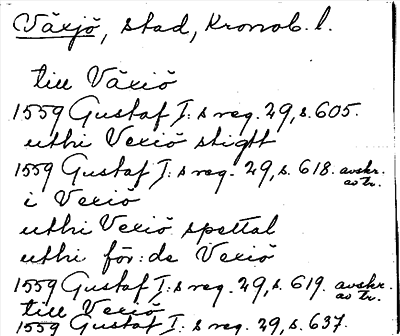 Växjö, stad, Kronob. l.
till Växiö
1559 Gustaf I:s reg. 29, s. 605.
uthi Vexiö stigtt
1559 Gustaf I:s reg. 29, s. 618. avskr. av tr.
i Vexiö
uthi Vexiö spettal
uthi för:de Vexiö
1559 Gustaf I:s reg. 29, s. 619. avskr. av tr.
till Vexiö
1559 Gustaf I:s reg. 29, s. 637.